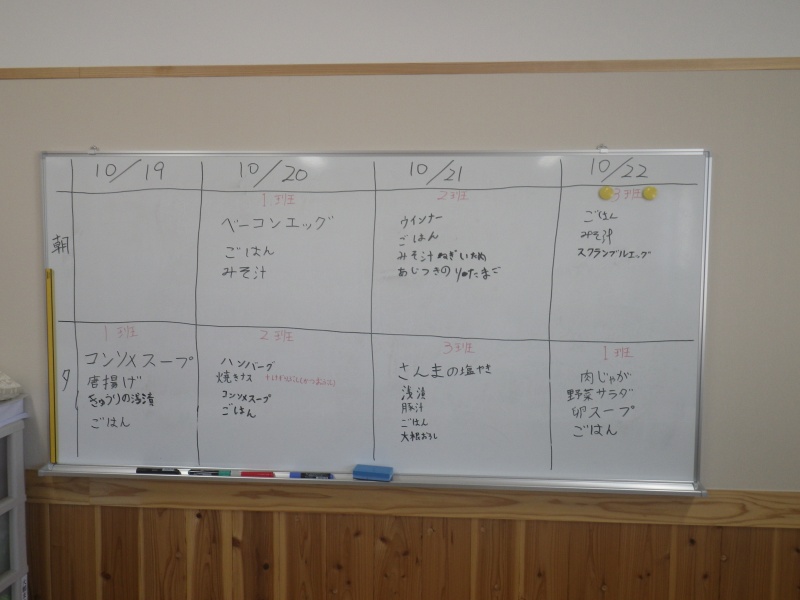 10/19
10/20
10/21
10/22
朝
1班
ベーコンエッグ
ごはん
みそ汁
2班
ウインナー
ごはん
みそ汁
あじつきのり
3班
ごはん
みそ汁
スクランブルエッグ
夕
1班
コンソメスープ
唐揚げ
きゅうりの浅漬
ごはん
2班
ハンバーグ
焼きナス
コンソメスープ
ごはん
3班
さんまの塩やき
浅漬
豚汁
ごはん
大根おろし
1班
肉じゃが
野菜サラダ
卵スープ
ごはん